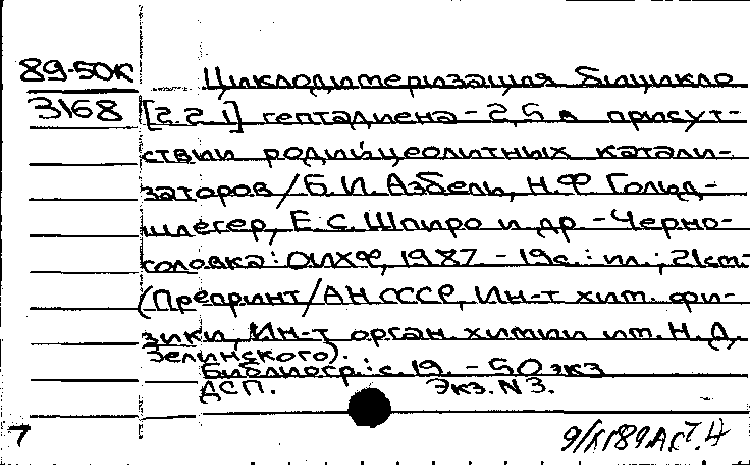 89-50к Циклодимеризация бицикло
3168 [2.2.1] гептадиена-2,5 в присут-
ствии родийцеолитных катали-
заторов / Б.И. Азбель, Н.Ф Гольд-
шлегер, Е.С. Шпиро и др. - Черно-
головка: ОИХФ, 1987. - 19с.: ил.; 21см.-
(Препринт / АН СССР, Ин-т хим. фи-
зики, Ин-т орган. химии им. Н.Д.
Зелинского).
Библиогр.: с. 19. - 50 экз
ДСП. Экз. N 3.
7